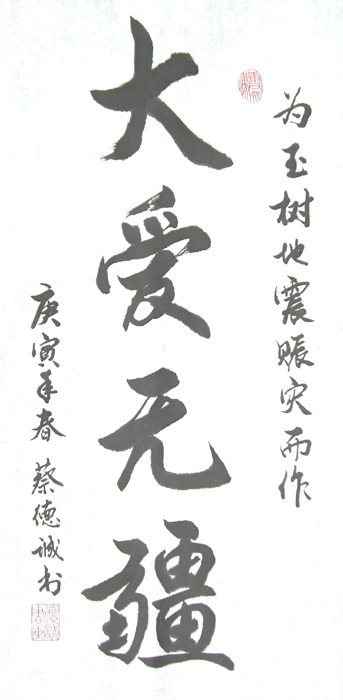 为玉树地震赈灾而作
大爱无疆
庚寅年春 蔡德诚书